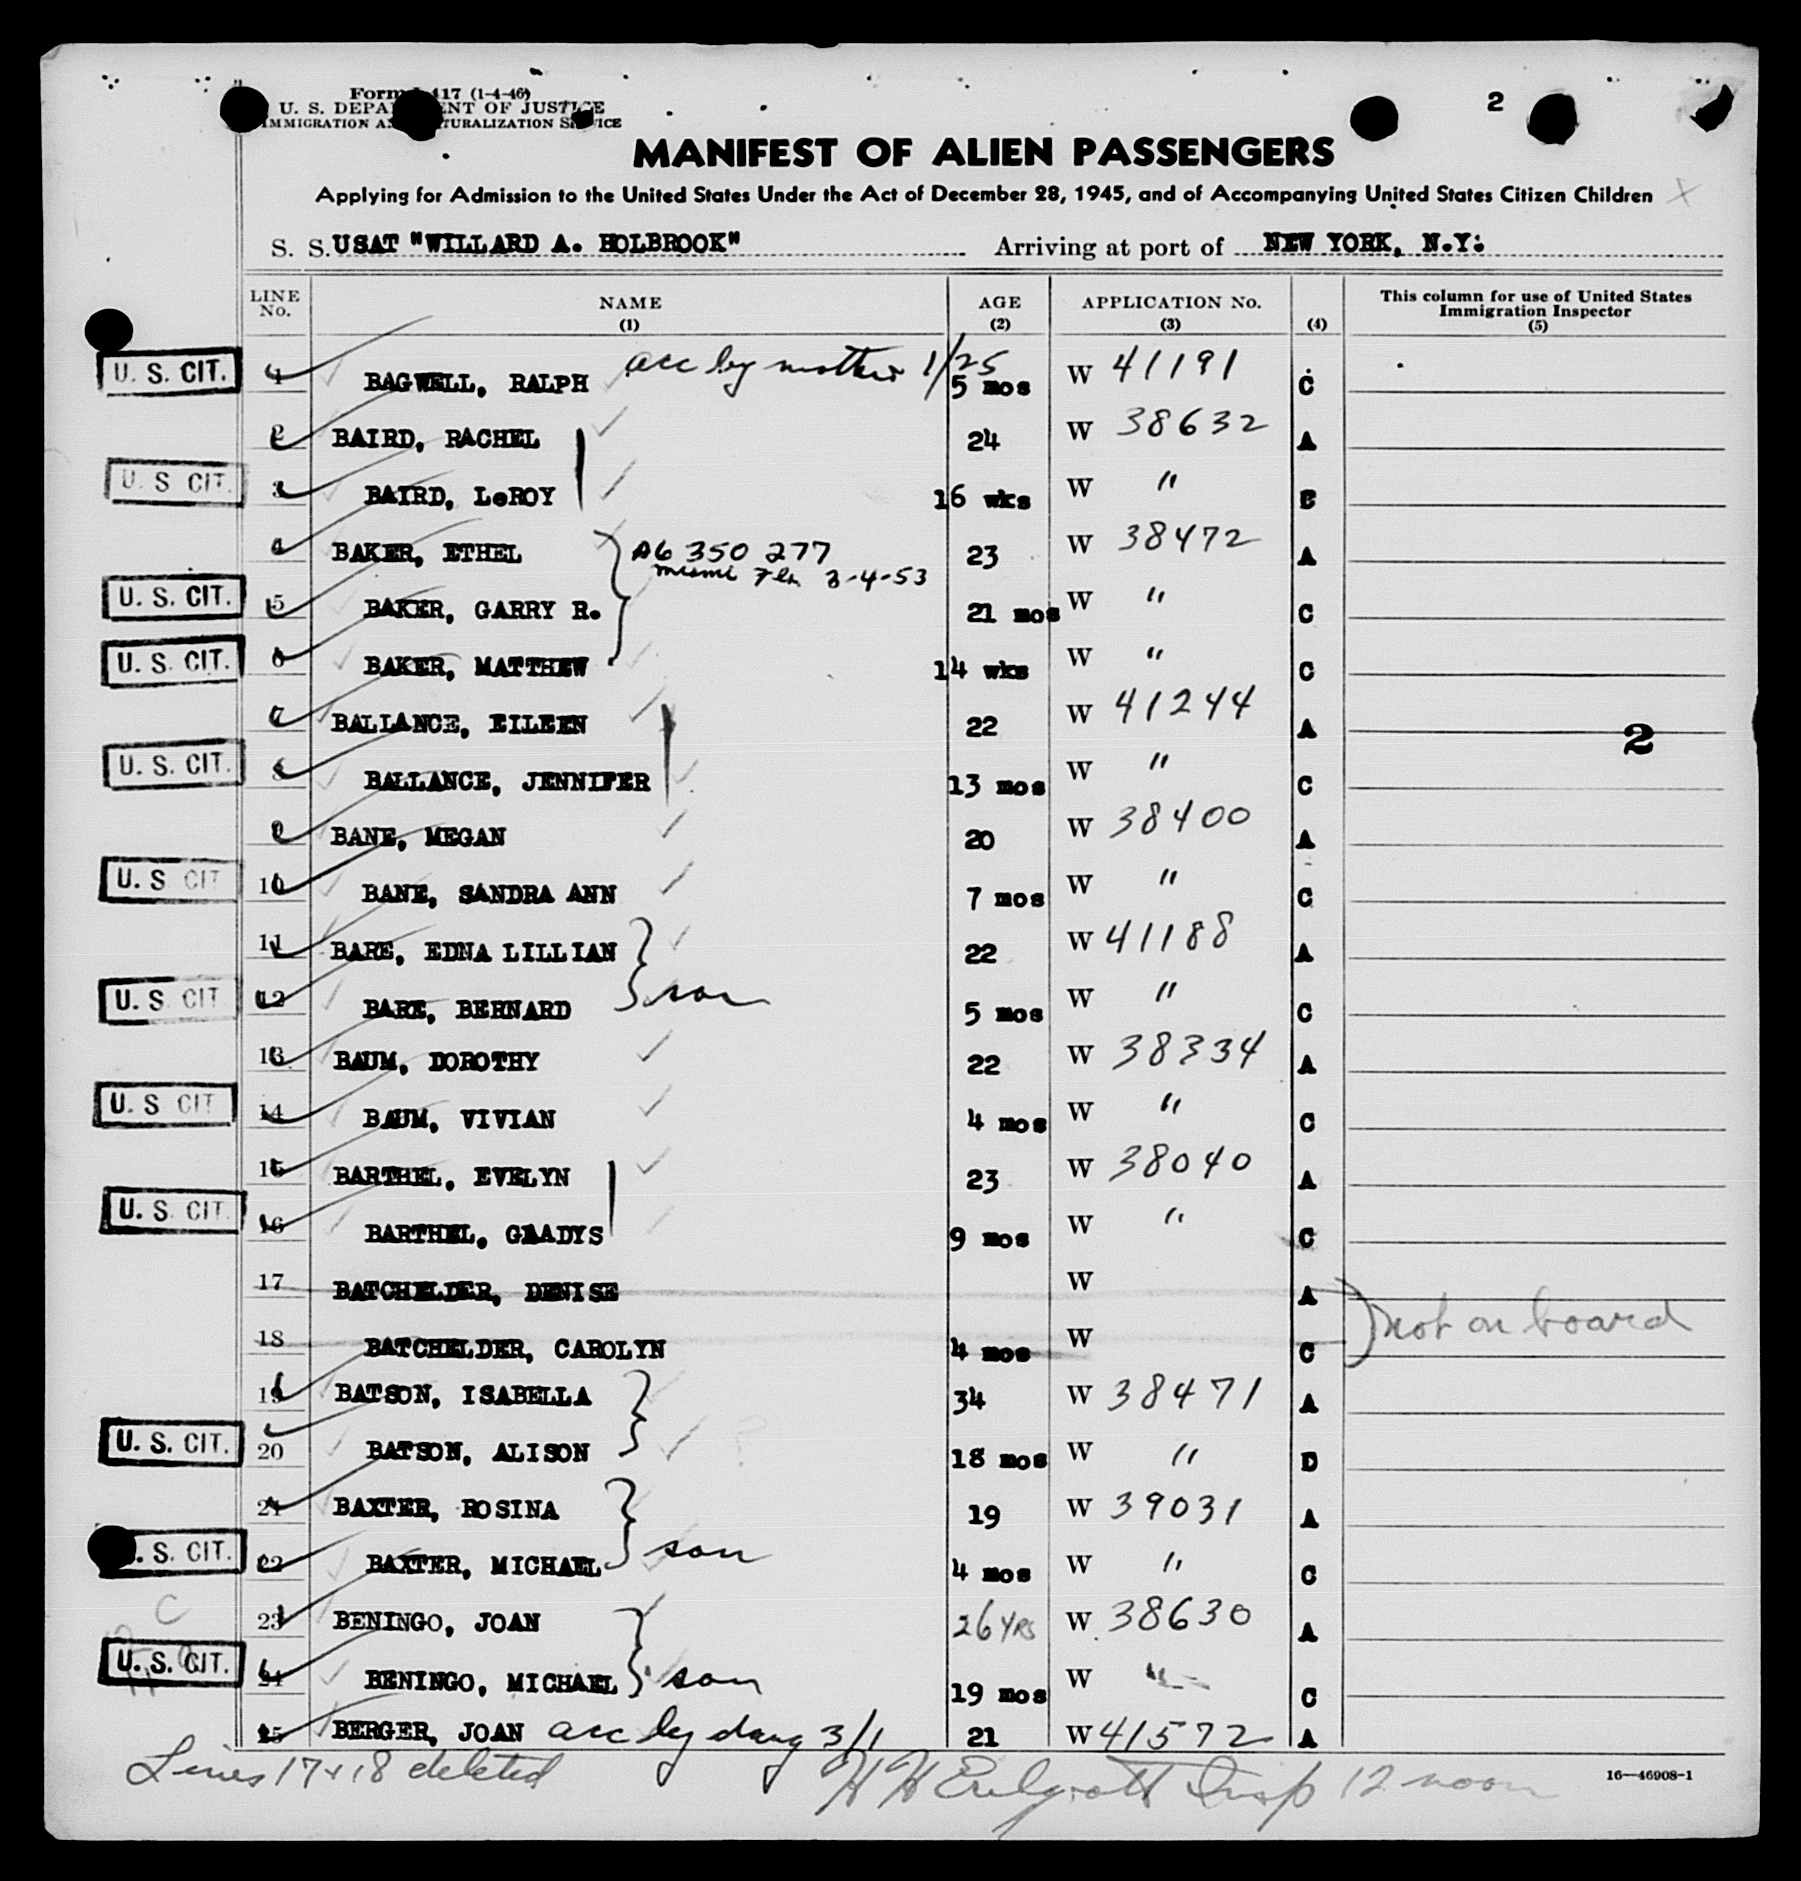 2
Form I-417 (1-4-46)
U. S. DEPARTMENT OF JUSTICE
IMMIGRATION AND NATURALIZATION SERVICE
MANIFEST OF ALIEN PASSENGERS
Applying for Admission to the United States Under the Act of December 28, 1945, and of Accompanying United States Citizen Children X
S. S. USAT "WILLARD A. HOLBROOK" Arriving at port of NEW YORK, N.Y.
LINE No. NAME (1) AGE (2) APPLICATION No. (3) (4) This column for use of United States Immigration Inspector (5)
U. S. CIT. 1 BAGWELL, RALPH acc by mother 1/25 5 mos W 41191 C
2 BAIRD, RACHEL 24 W 38632 A
U. S CIT. 3 BAIRD, LeROY 16 wks W " C
4 BAKER, ETHEL A6 350 277 23 W 38472 A
Miami Fla 3-4-53
U. S. CIT. 5 BAKER, GARRY R. 21 mos W " C
U. S. CIT. 6 BAKER, MATTHEW 14 wks W " C
7 BALLANCE, EILEEN 22 W 41244 A
2
U. S. CIT. 8 BALLANCE, JENNIFER 13 mos W " C
9 BANE, MEGAN 20 W 38400 A
U. S CIT 10 BANE, SANDRA ANN 7 mos W " C
11 BARE, EDNA LILLIAN 22 W 41188 A
U. S CIT 12 BARE, BERNARD son 5 mos W " C
13 BAUM, DOROTHY 22 W 38334 A
U. S CIT 14 BAUM, VIVIAN 4 mos W " C
15 BARTHEL, EVELYN 23 W 38040 A
U. S. CIT. 16 BARTHEL, GLADYS 9 mos W " C
17 BATCHELDER, DENISE W A
not on board
18 BATCHELDER, CAROLYN 4 mos W C
19 BATSON, ISABELLA 34 W 38471 A
U. S. CIT. 20 BATSON, ALISON ? 18 mos W " D
21 BAXTER, ROSINA 19 W 39031 A
U. S. CIT. 22 BAXTER, MICHAEL son 4 mos W " C
C 23 BENINGO, JOAN 26 YRS W 38630 A
U. S. CIT. 24 BENINGO, MICHAEL son 19 mos W " C
25 BERGER, JOAN acc by daug 3/1 21 W 41572 A
Lines 17 & 18 deleted
H H Insp 12 noon
16—46908-1